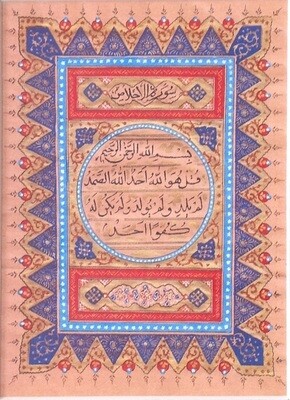 سورة الإخلاص
بسم الله الرحمن الرحيم
قل هو الله أحد الله الصمد
لم يلد ولم يولد ولم يكن له
كفوا أحد